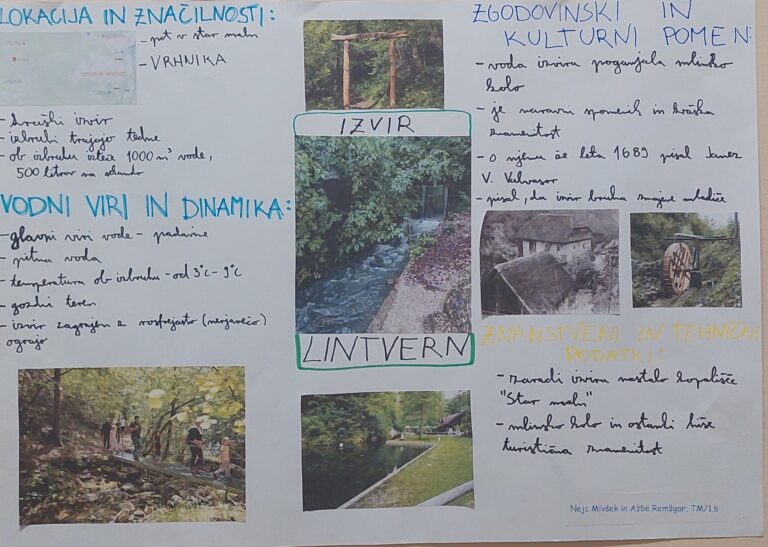 LOKACIJA IN ZNAČILNOSTI:
- pot v star maln
- VRHNIKA
- kraški izvir
- izbruhi trajajo tedne
- ob izbruhu izteče 1000 m³ vode,
500 litrov na sekundo
VODNI VIRI IN DINAMIKA:
- glavni viri vode - padavine
- pitna voda
- temperatura ob izbruhu - od 3°C - 9°C
- gozdni teren
- izvir zagrajen z rosfrejasto (nerjavečo)
ograjo
IZVIR
LINTVERN
ZGODOVINSKI IN
KULTURNI POMEN:
- voda izvira poganjala mlinsko
kolo
- je naravni spomenik in kraška
znamenitost
- o njemu že leta 1689 pisal Janez
V. Valvasor
- pisal, da izvir bruha zmajeve mladiče
ZNANSTVENI IN TEHNIČNI
PODATKI:
- zaradi izvira nastalo kopališče
"Star maln"
- mlinsko kolo in ostanki hiše
turistična znamenitost
Nejc Mivšek in Ažbe Remžgar, TM/1.b